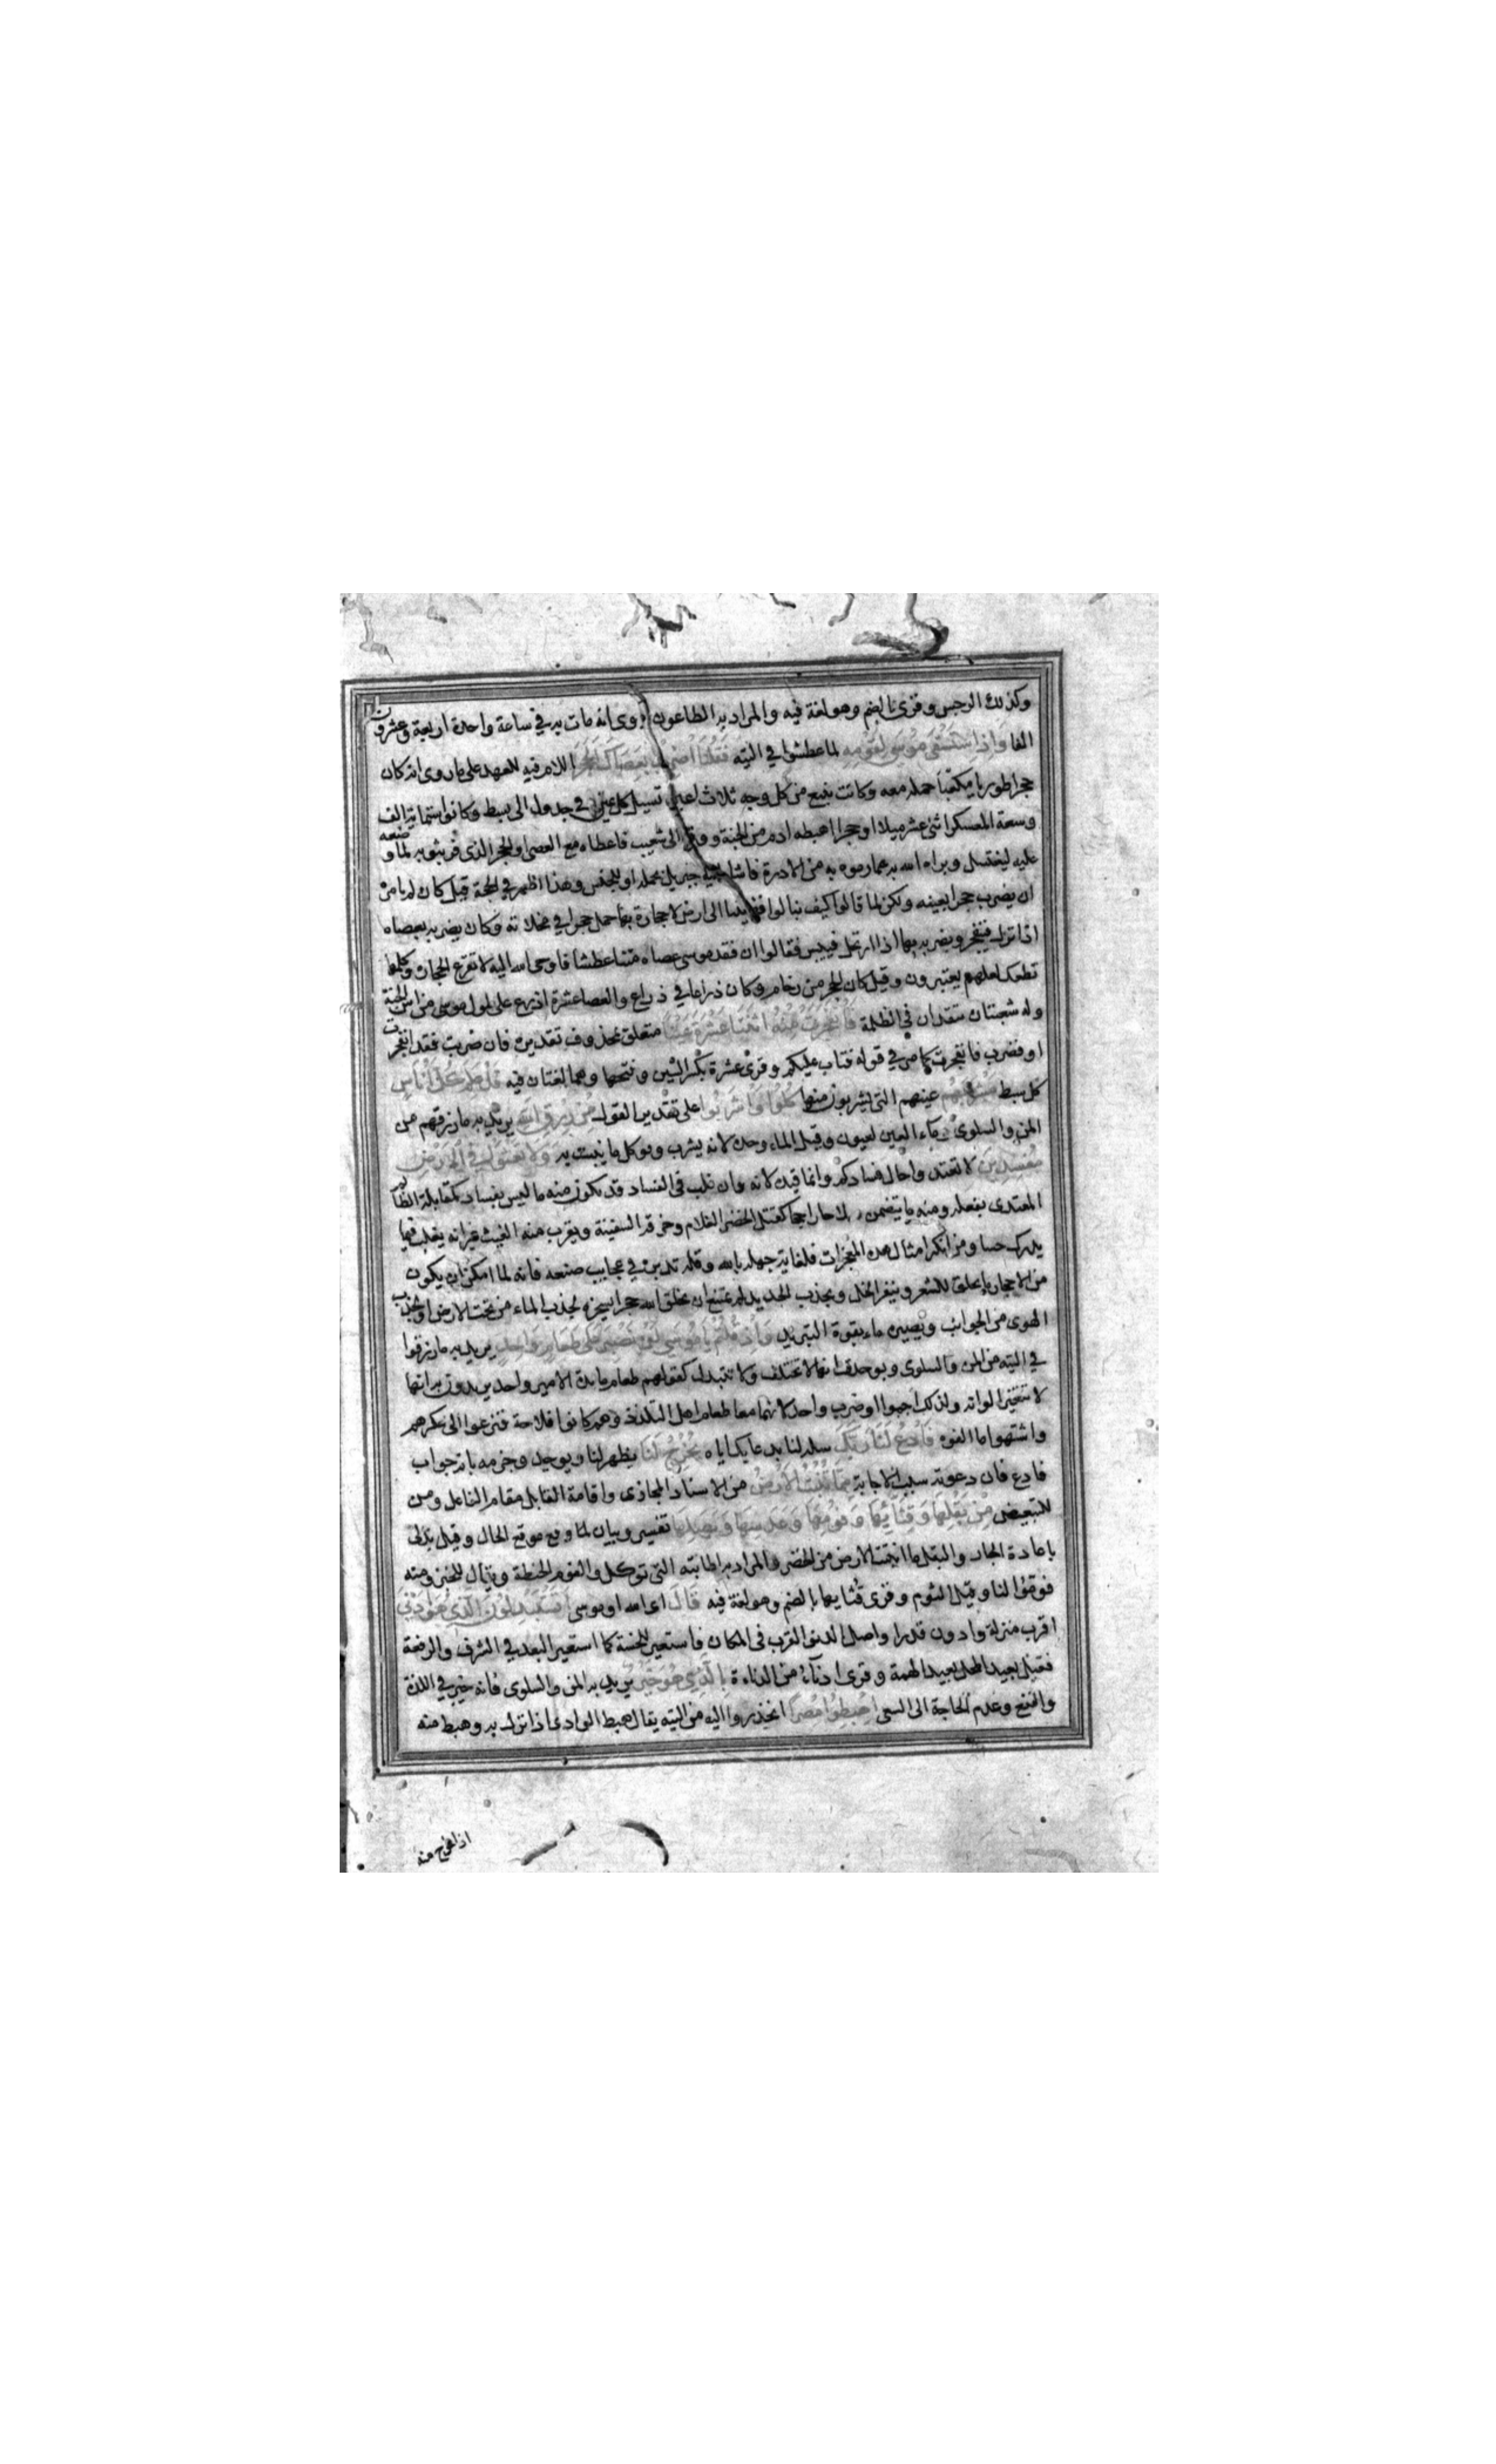 وكذلك الرجس وقرئ بالضم وهو لغة فيه والمراد به الطاعون روى انه مات به في ساعة واحدة اربعة وعشرون
الفا وَاِذِ اسْتَسْقَى مُوسَى لِقَوْمِهِ لما عطشوا في التيه فَقُلْنَا اضْرِبْ بِعَصَاكَ الْحَجَرَ اللام فيه للعهد على ما روى انه كان
حجرا طوريا مكعبا حمله معه وكانت تنبع من كل وجه ثلاث اعين تسيل كل عين في جدول الى سبط وكانوا ستماية الف
وسعة المعسكر اثنى عشر ميلا او حجرا اهبطه ادم من الجنة ووقع الى شعيب فاعطاه مع العصى او الحجر الذى فر بثوبه لما وضعه
عليه ليغتسل وبراه الله به عما رموه به من الادرة فاشار اليه جبريل بحمله او للجنس وهذا اظهر في الحجة قيل كان لم يامره
ان يضرب حجرا بعينه ولكن لما قالوا كيف بنا لو افضينا الى ارض لا حجارة بها حمل حجرا في مخلاته وكان يضربه بعصاه
اذا نزل فينفجر ويضربه بها اذا ارتحل فييبس فقالوا ان فقد موسى عصاه متنا عطشا فاوحى الله اليه لا تقرع الحجارة وكلمها
تطعك لعلهم يعتبرون وقيل كان الحجر من رخام وكان ذراعا في ذراع والعصا عشرة اذرع على طول موسى من اس الجنة
وله شعبتان تتقدان في الظلمة فَانْفَجَرَتْ مِنْهُ اثْنَتَا عَشْرَةَ عَيْنًا متعلق بمحذوف تقديره فان ضربت فقد انفجرت
او فضرب فانفجرت كما مر في قوله فتاب عليكم وقرئ عشرة بكسر الشين وفتحها وهما لغتان فيه قَدْ عَلِمَ كُلُّ اُنَاسٍ
كل سبط مَشْرَبَهُمْ عينهم التى يشربون منها كُلُوا وَاشْرَبُوا على تقدير القول مِنْ رِزْقِ اللهِ يريد به ما رزقهم من
المن والسلوى وماء العيون وقيل الماء وحده لانه يشرب ويوكل ما ينبت به وَلَا تَعْثَوْا فِى الْاَرْضِ
مُفْسِدِينَ لا تعتدوا حال فسادكم وانما قيده لانه وان غلب فى الفساد قد يكون منه ما ليس بفساد كمقابلة الظالم
المعتدى بفعله ومنه ما يتضمن صلاحا راجحا كقتل الخضر الغلام وخرقه السفينة ويقرب منه العيث غير انه يغلب فيما
يدرك حسا ومن انكر امثال هذه المعجزات فلغاية جهله بالله وقلة تدبره في عجايب صنعه فانه لما امكن ان يكون
من الاحجار ما يحلق الشعر وينفر الخل ويجذب الحديد لم يمتنع ان يخلق الله حجرا يسخره لجذب الماء من تحت الارض او لجذب
الهوى من الجوانب ويصيره ماء بقوة التبريد وَاِذْ قُلْتُمْ يَا مُوسَى لَنْ نَصْبِرَ عَلَى طَعَامٍ وَاحِدٍ يريد به ما رزقوا
في التيه من المن والسلوى وبوحدته انها لا تختلف ولا تتبدل كقولهم طعام مايدة الامير واحد يريدون به انها
لا تتغير الوانه ولذلك اجموا او ضرب واحد لانهما معا طعام اهل التلذذ وهم كانوا فلاحة فنزعوا الى عكرهم
واشتهوا ما الفوه فَادْعُ لَنَا رَبَّكَ سله لنا بدعايك اياه يُخْرِجْ لَنَا يظهر لنا ويوجد وجزمه بانه جواب
فادع فان دعوته سبب الاجابة مِمَّا تُنْبِتُ الْاَرْضُ من الاسناد المجازى واقامة القابل مقام الفاعل ومن
للتبعيض مِنْ بَقْلِهَا وَقِثَّائِهَا وَفُومِهَا وَعَدَسِهَا وَبَصَلِهَا تفسير وبيان لما وقع موقع الحال وقيل بدل
باعادة الجار والبقل ما انبتته الارض من الخضر والمراد به اطايبه التى توكل والفوم الحنطة ويقال للخبز ومنه
فوموا لنا وقيل الثوم وقرى قُثايها بالضم وهو لغة فيه قَالَ اى الله او موسى اَتَسْتَبْدِلُونَ الَّذِى هُوَ اَدْنَى
اقرب منزلة وادون قدرا واصل الدنو القرب فى المكان فاستعير للخسة كما استعير البعد في الشرف والرفعة
فقيل بعيد المحل بعيد الهمة وقرى ادناء من الدناءة بِالَّذِى هُوَ خَيْرٌ يريد به المن والسلوى فانه خير في اللذة
والنفع وعدم الحاجة الى السعى اِهْبِطُوا مِصْرًا انحدروا اليه من التيه يقال هبط الوادى اذا نزل به وهبط منه
اذا خرج منه